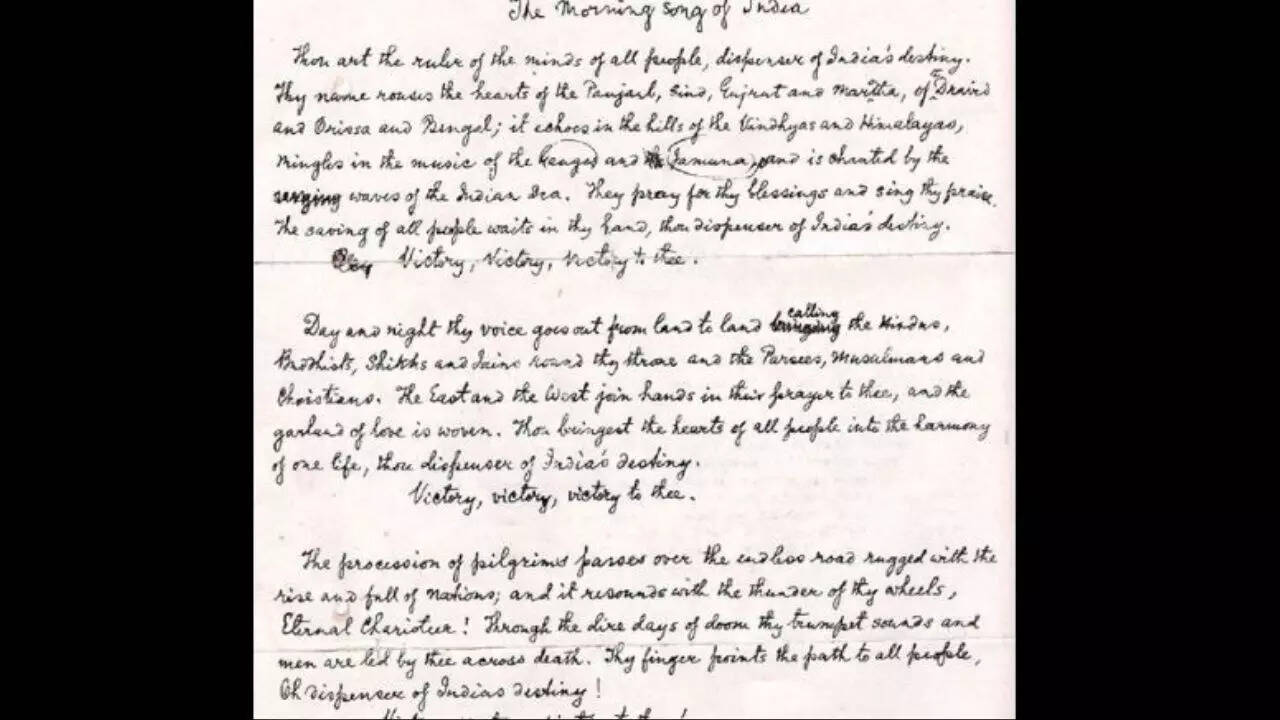 The Morning song of India
Thou art the ruler of the minds of all people, dispenser of India's destiny.
Thy name rouses the hearts of the Panjaub, Sind, Gujrat and Maratha, of Dravid
and Orissa and Bengal; it echoes in the hills of the Vindhyas and Himalayas,
mingles in the music of the Ganges and Jamuna, and is chanted by the
surging waves of the Indian Sea. They pray for thy blessings and sing thy praise.
The saving of all people waits in thy hand, thou dispenser of India's destiny.
Victory, Victory, Victory to thee.
Day and night thy voice goes out from land to land calling the Hindus,
Buddhists, Shikhs and Jains round thy throne and the Parsees, Musulmans and
Christians. The East and the West join hands in their prayer to thee, and the
garland of love is woven. Thou bringest the hearts of all people into the harmony
of one life, thou dispenser of India's destiny.
Victory, victory, victory to thee.
The procession of pilgrims passes over the endless road rugged with the
rise and fall of nations; and it resounds with the thunder of thy wheels,
Eternal Charioteer! Through the dire days of doom thy trumpet sounds and
men are led by thee across death. Thy finger points the path to all people,
Oh dispenser of Indias destiny!